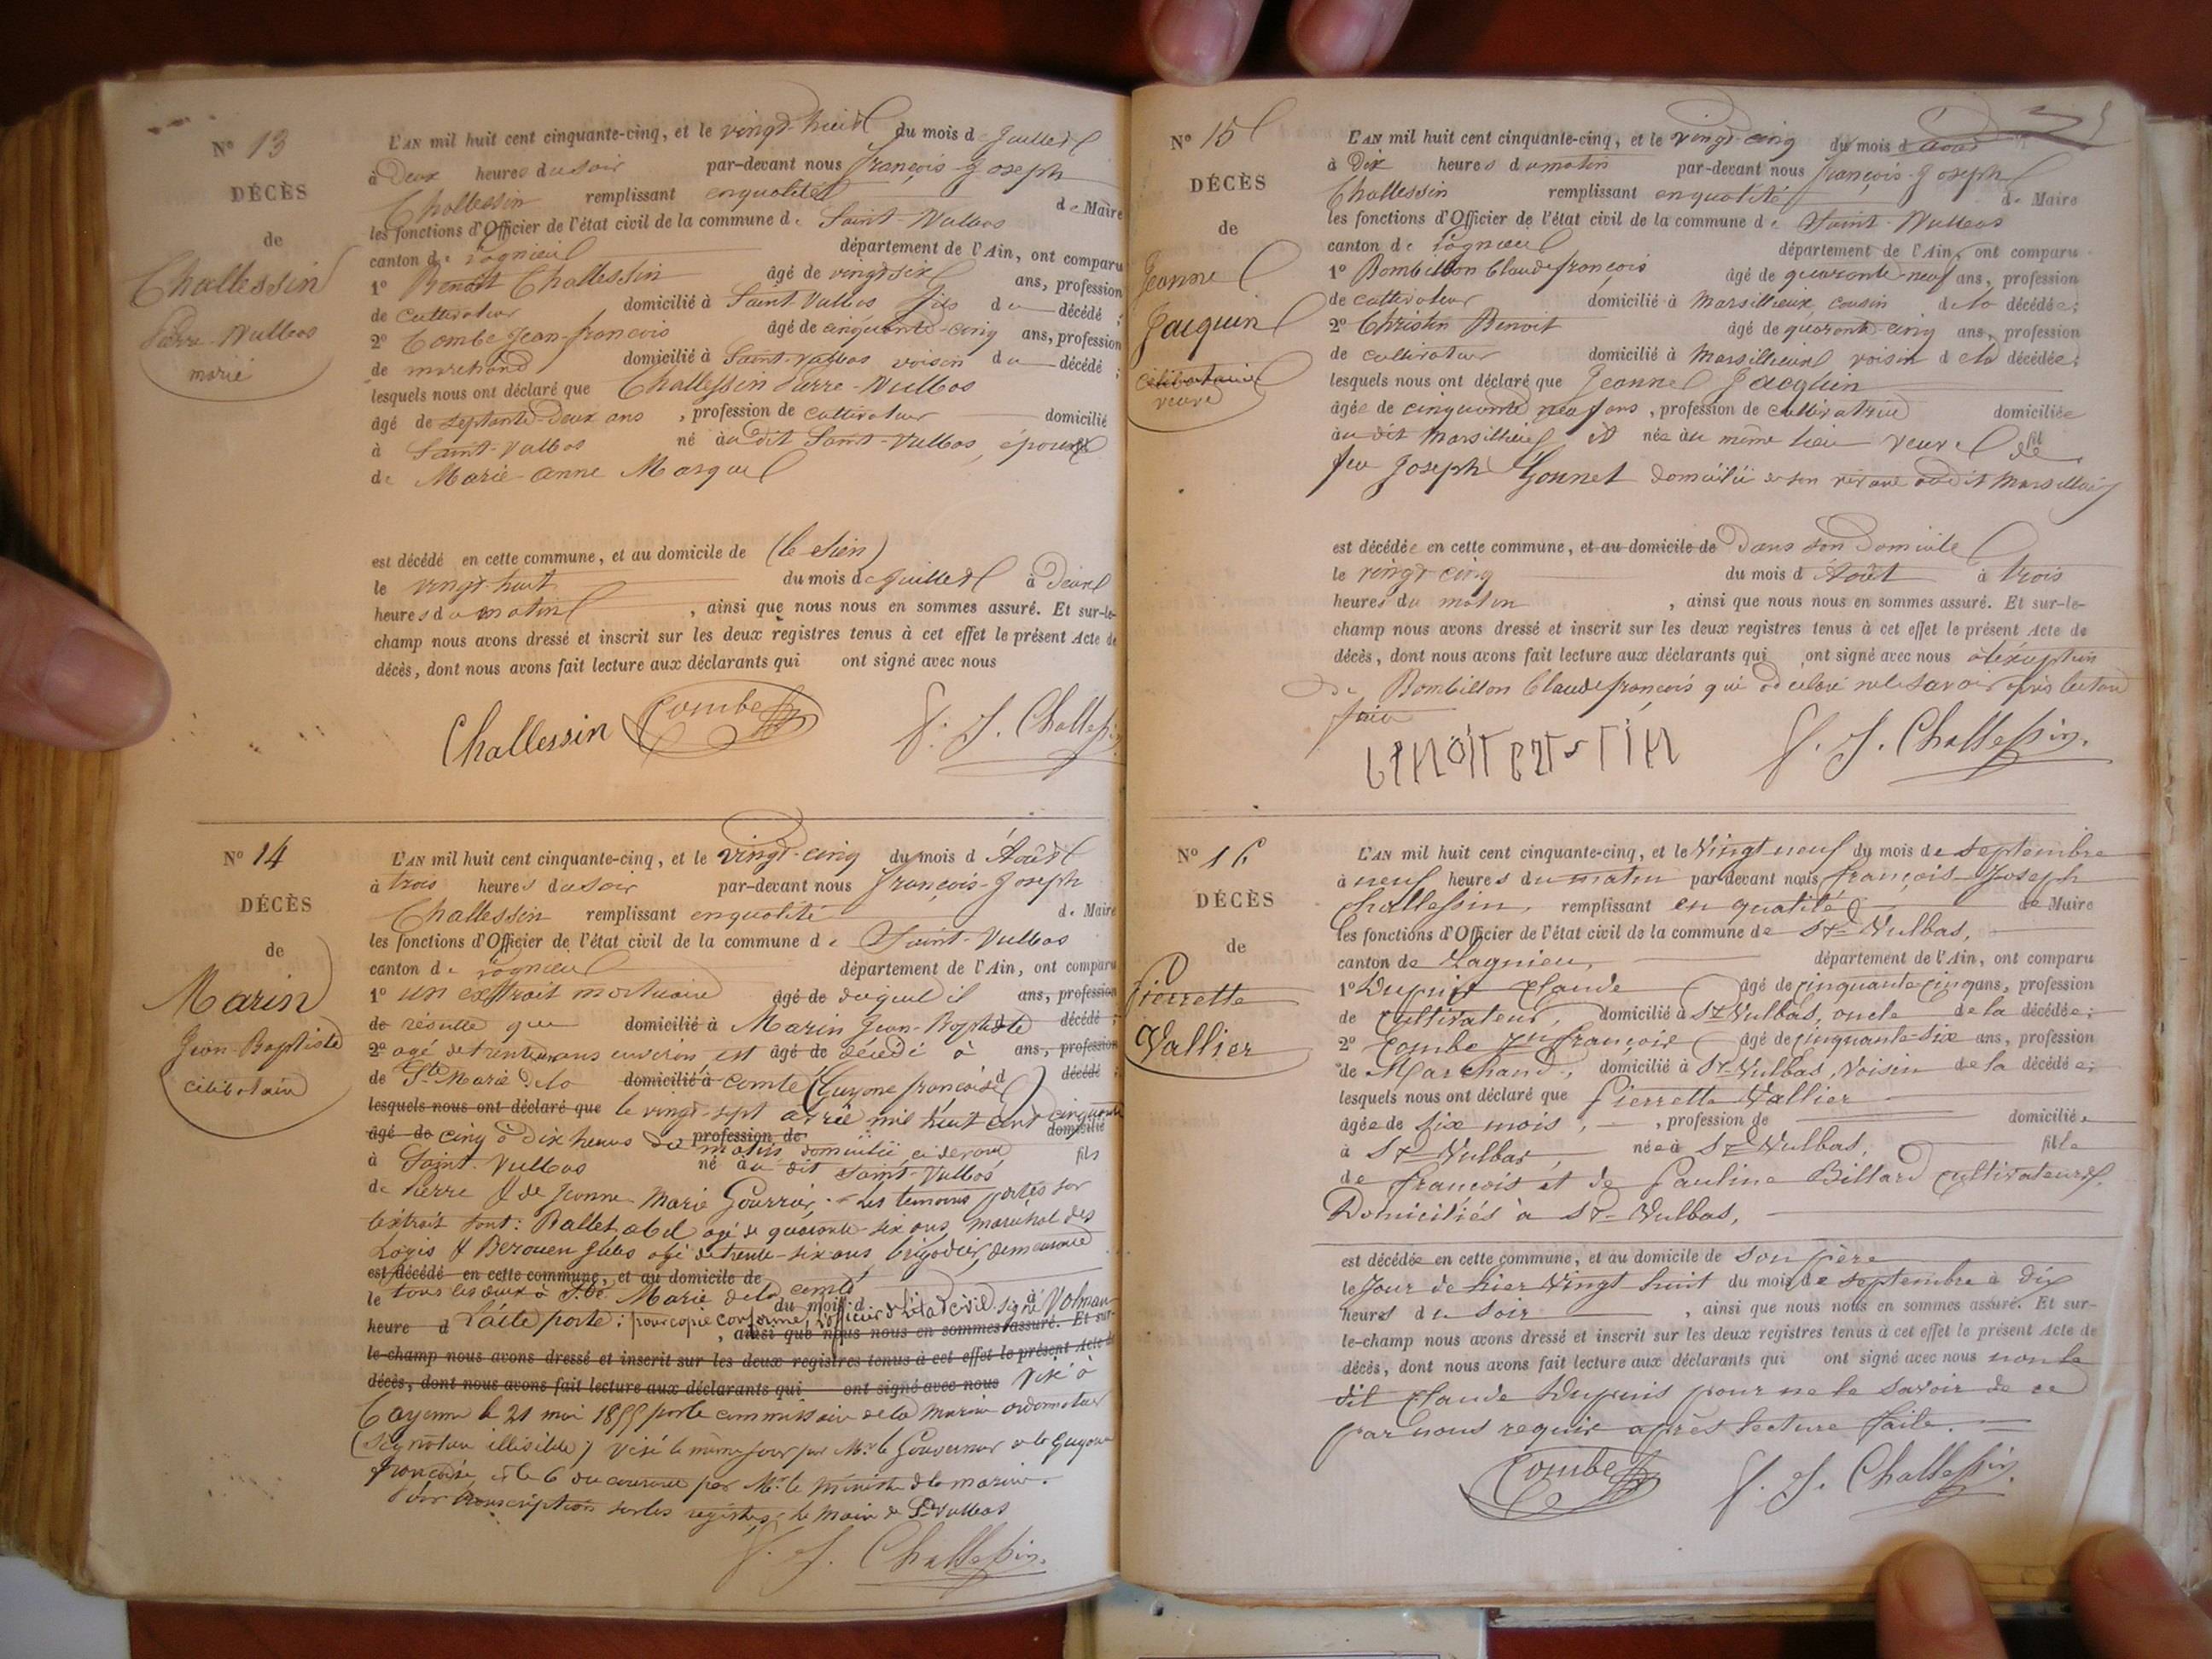 N° 13
DÉCÈS
de
Challessin
Pierre-Vulbas
marié
L'AN mil huit cent cinquante-cinq, et le vingt-huit du mois de Juillet
à Deux heures du soir par-devant nous françois-Joseph
Challessin remplissant en qualité de Maire
les fonctions d'Officier de l'état civil de la commune de Saint-Vulbas
canton de Lagnieu département de l'Ain, ont comparu
1° Benoît Challessin âgé de vingt six ans, profession
de cultivateur domicilié à Saint Vulbas fils du décédé ;
2° Combe Jean-françois âgé de cinquante-cinq ans, profession
de marchand domicilié à Saint-Vulbas voisin du décédé ;
lesquels nous ont déclaré que Challessin Pierre-Vulbas
âgé de septante-deux ans , profession de cultivateur domicilié
à Saint-Vulbas né audit Saint-Vulbas, époux
de Marie-anne Marquet
est décédé en cette commune, et au domicile de (le sien)
le vingt-huit du mois de Juillet à Deux
heures du matin , ainsi que nous nous en sommes assuré. Et sur-le-
champ nous avons dressé et inscrit sur les deux registres tenus à cet effet le présent Acte de
décès, dont nous avons fait lecture aux déclarants qui ont signé avec nous
Challessin Combe f. J. Challessin
N° 14
DÉCÈS
de
Marin
Jean-Baptiste
célibataire
L'AN mil huit cent cinquante-cinq, et le vingt-cinq du mois d Août
à trois heures du soir par-devant nous françois-Joseph
Challessin remplissant en qualité de Maire
les fonctions d'Officier de l'état civil de la commune de Saint-Vulbas
canton de Lagnieu département de l'Ain, ont comparu
1° un extrait mortuaire âgé de duquel il ans, profession
de résulte que domicilié à Marin Jean-Baptiste décédé ;
2° agé de trente ans environ est âgé de décédé à ans, profession
de Ste Marie de la domicilié à comté (Guyane française) décédé ;
lesquels nous ont déclaré que le vingt-sept avril mil huit cent cinquante
âgé de cinq à dix heures du profession de matin domicilié ci devant domicilié
à Saint-Vulbas né audit Saint-Vulbas fils
de Pierre & de Jeanne Marie Gourrier. Les temoins portés sur
l'extrait sont : Ballet abel agé de quarante-six ans, marechal des
Logis & Berouen Jules agé de trente-six ans brigadier, demeurant
est décédé en cette commune, et au domicile de
le tous les deux à Ste Marie de la comté du mois d à
heure d L'acte porte : pour copie conforme, L'officier de L'état civil signé Volman
, ainsi que nous nous en sommes assuré. Et sur-
le-champ nous avons dressé et inscrit sur les deux registres tenus à cet effet le présent Acte de
décès, dont nous avons fait lecture aux déclarants qui ont signé avec nous Visé à
Cayenne le 21 mai 1855 par le commissaire de la marine ordonnateur
(signature illisible) visé le même jour par Mr le Gouverneur de la Guyane
française, et le 6 du courant par Mr le ministre de la marine.
Pour transcription sur les registres, le Maire de St Vulbas
f. J. Challessin.
N° 15
DÉCÈS
de
Jeanne
Jacquin
célibataire
veuve
L'AN mil huit cent cinquante-cinq, et le vingt-cinq du mois d aout
à Dix heures du matin par-devant nous françois-Joseph
Challessin remplissant en qualité de Maire
les fonctions d'Officier de l'état civil de la commune de Saint-Vulbas
canton de Lagnieu département de l'Ain, ont comparu
1° Bombillon Claude françois âgé de quarante-neuf ans, profession
de cultivateur domicilié à Marsillieux, cousin de la décédée ;
2° Christin Benoit âgé de quarante cinq ans, profession
de cultivateur domicilié à Marsillieux voisin de la décédée ;
lesquels nous ont déclaré que Jeanne Jacquin
âgée de cinquante neuf ans , profession de cultivatrice domiciliée
audit Marsillieux, et née au même lieu veuve de
feu Joseph Gonnet domicilié de son vivant audit Marsillieux
est décédée en cette commune, et au domicile de Dans son domicile
le vingt-cinq du mois d Août à trois
heures du matin , ainsi que nous nous en sommes assuré. Et sur-le-
champ nous avons dressé et inscrit sur les deux registres tenus à cet effet le présent Acte de
décès, dont nous avons fait lecture aux déclarants qui ont signé avec nous à l'exception
de Bombillon Claude françois qui a déclaré ne le savoir après lecture
faite
f. J. Challessin.
N° 16
DÉCÈS
de
Pierrette
Vallier
L'AN mil huit cent cinquante-cinq, et le Vingt neuf du mois de septembre
à neuf heures du matin par-devant nous françois-Joseph
Challessin, remplissant en qualité de Maire
les fonctions d'Officier de l'état civil de la commune de St-Vulbas,
canton de Lagnieu, département de l'Ain, ont comparu
1° Dupuis Claude âgé de cinquante cinq ans, profession
de Cultivateur, domicilié à St Vulbas, oncle de la décédée ;
2° Combe Jn françois âgé de cinquante-six ans, profession
de Marchand, domicilié à St-Vulbas, Voisin de la décédée ;
lesquels nous ont déclaré que Pierrette Vallier
âgée de six mois, , profession de domiciliée
à St-Vulbas, née à St Vulbas, fille
de françois et de Pauline Billard cultivateurs,
Domiciliés à St-Vulbas,
est décédée en cette commune, et au domicile de son père
le Jour de hier Vingt huit du mois de septembre à dix
heures du soir , ainsi que nous nous en sommes assuré. Et sur-
le-champ nous avons dressé et inscrit sur les deux registres tenus à cet effet le présent Acte de
décès, dont nous avons fait lecture aux déclarants qui ont signé avec nous non le
dit Claude Dupuis pour ne le savoir de ce
par nous requis après lecture faite.
Combe f. J. Challessin.